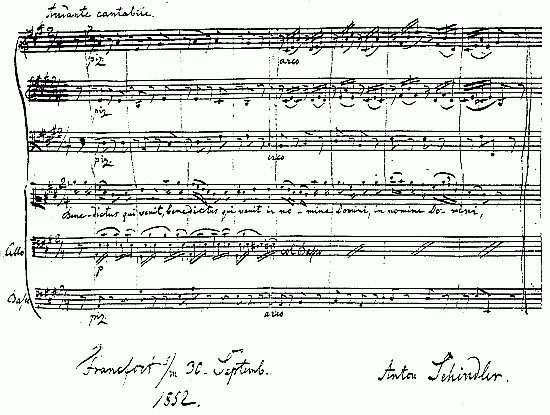 Andante cantabile.
piz arco
piz
piz arco
Benedictus qui venit, benedictus qui venit in no - mine Domini, in nomine Do - mini,
Cello
p
Bass
piz arco
Francfort s/m 30. Septemb.
1852.
Anton Schindler.